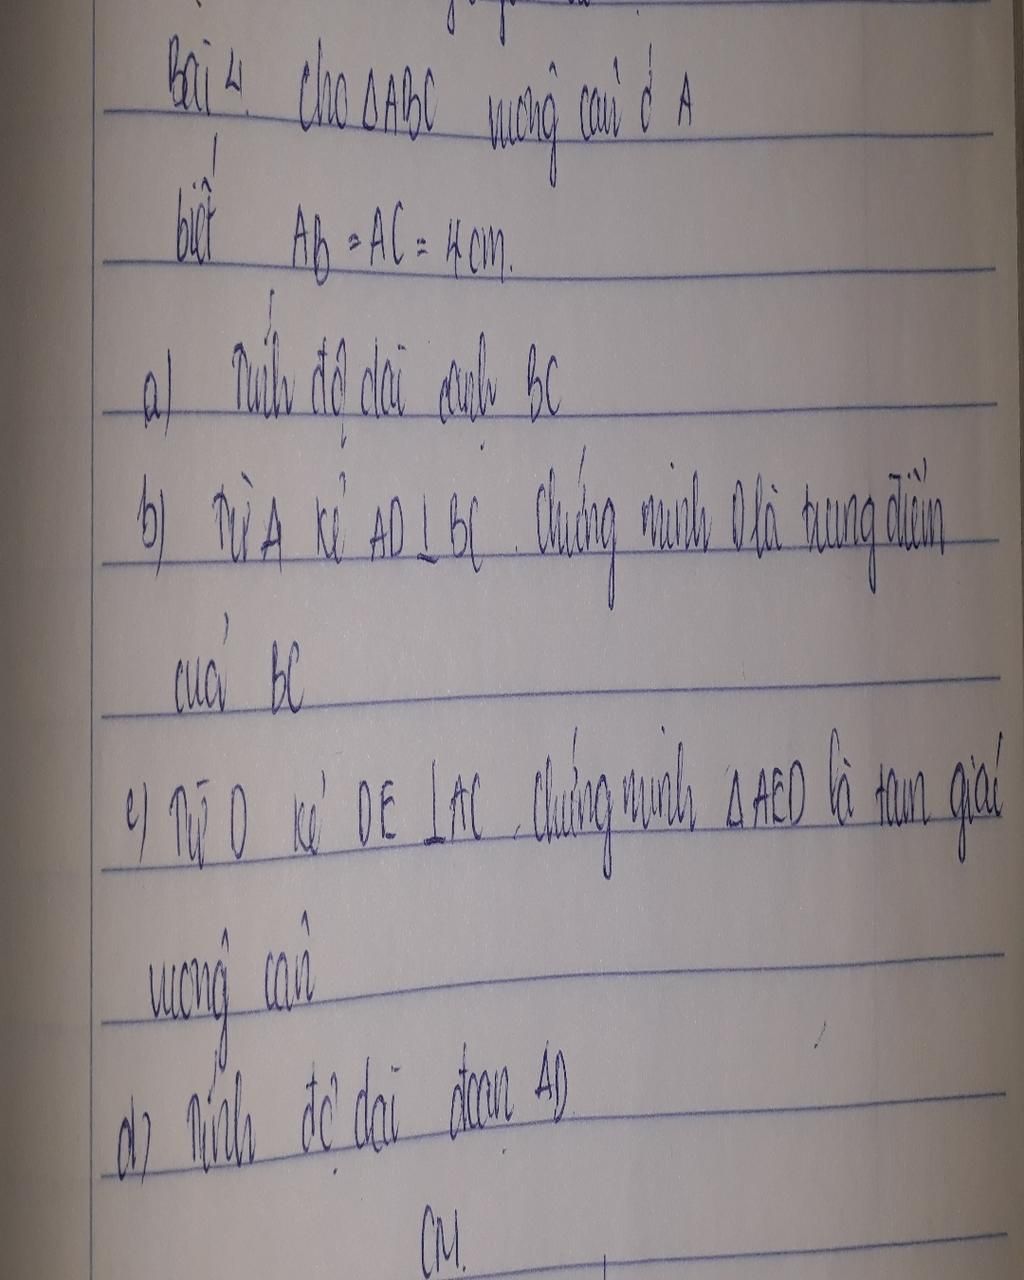 Bài 4. Cho ΔABC vuông cân ở A
biết AB = AC = 4cm.
a) Tính độ dài cạnh BC
b) Từ A kẻ AD ⊥ BC. Chứng minh D là trung điểm
của BC
c) Từ D kẻ DE ⊥ AC. Chứng minh ΔAED là tam giác
vuông cân
d) Tính độ dài đoạn AD
CM.